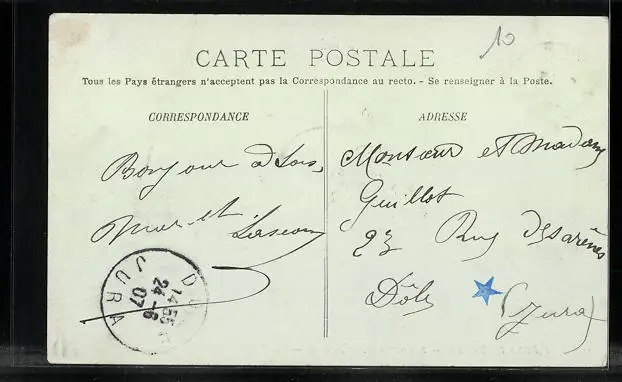 10
CARTE POSTALE
Tous les Pays étrangers n'acceptent pas la Correspondance au recto. - Se renseigner à la Poste.
CORRESPONDANCE
ADRESSE
Bonjour
Monsieur et Madame
Guillot
23 Rue des arènes
Dôle (Jura)
14 55
24-6
07
JURA